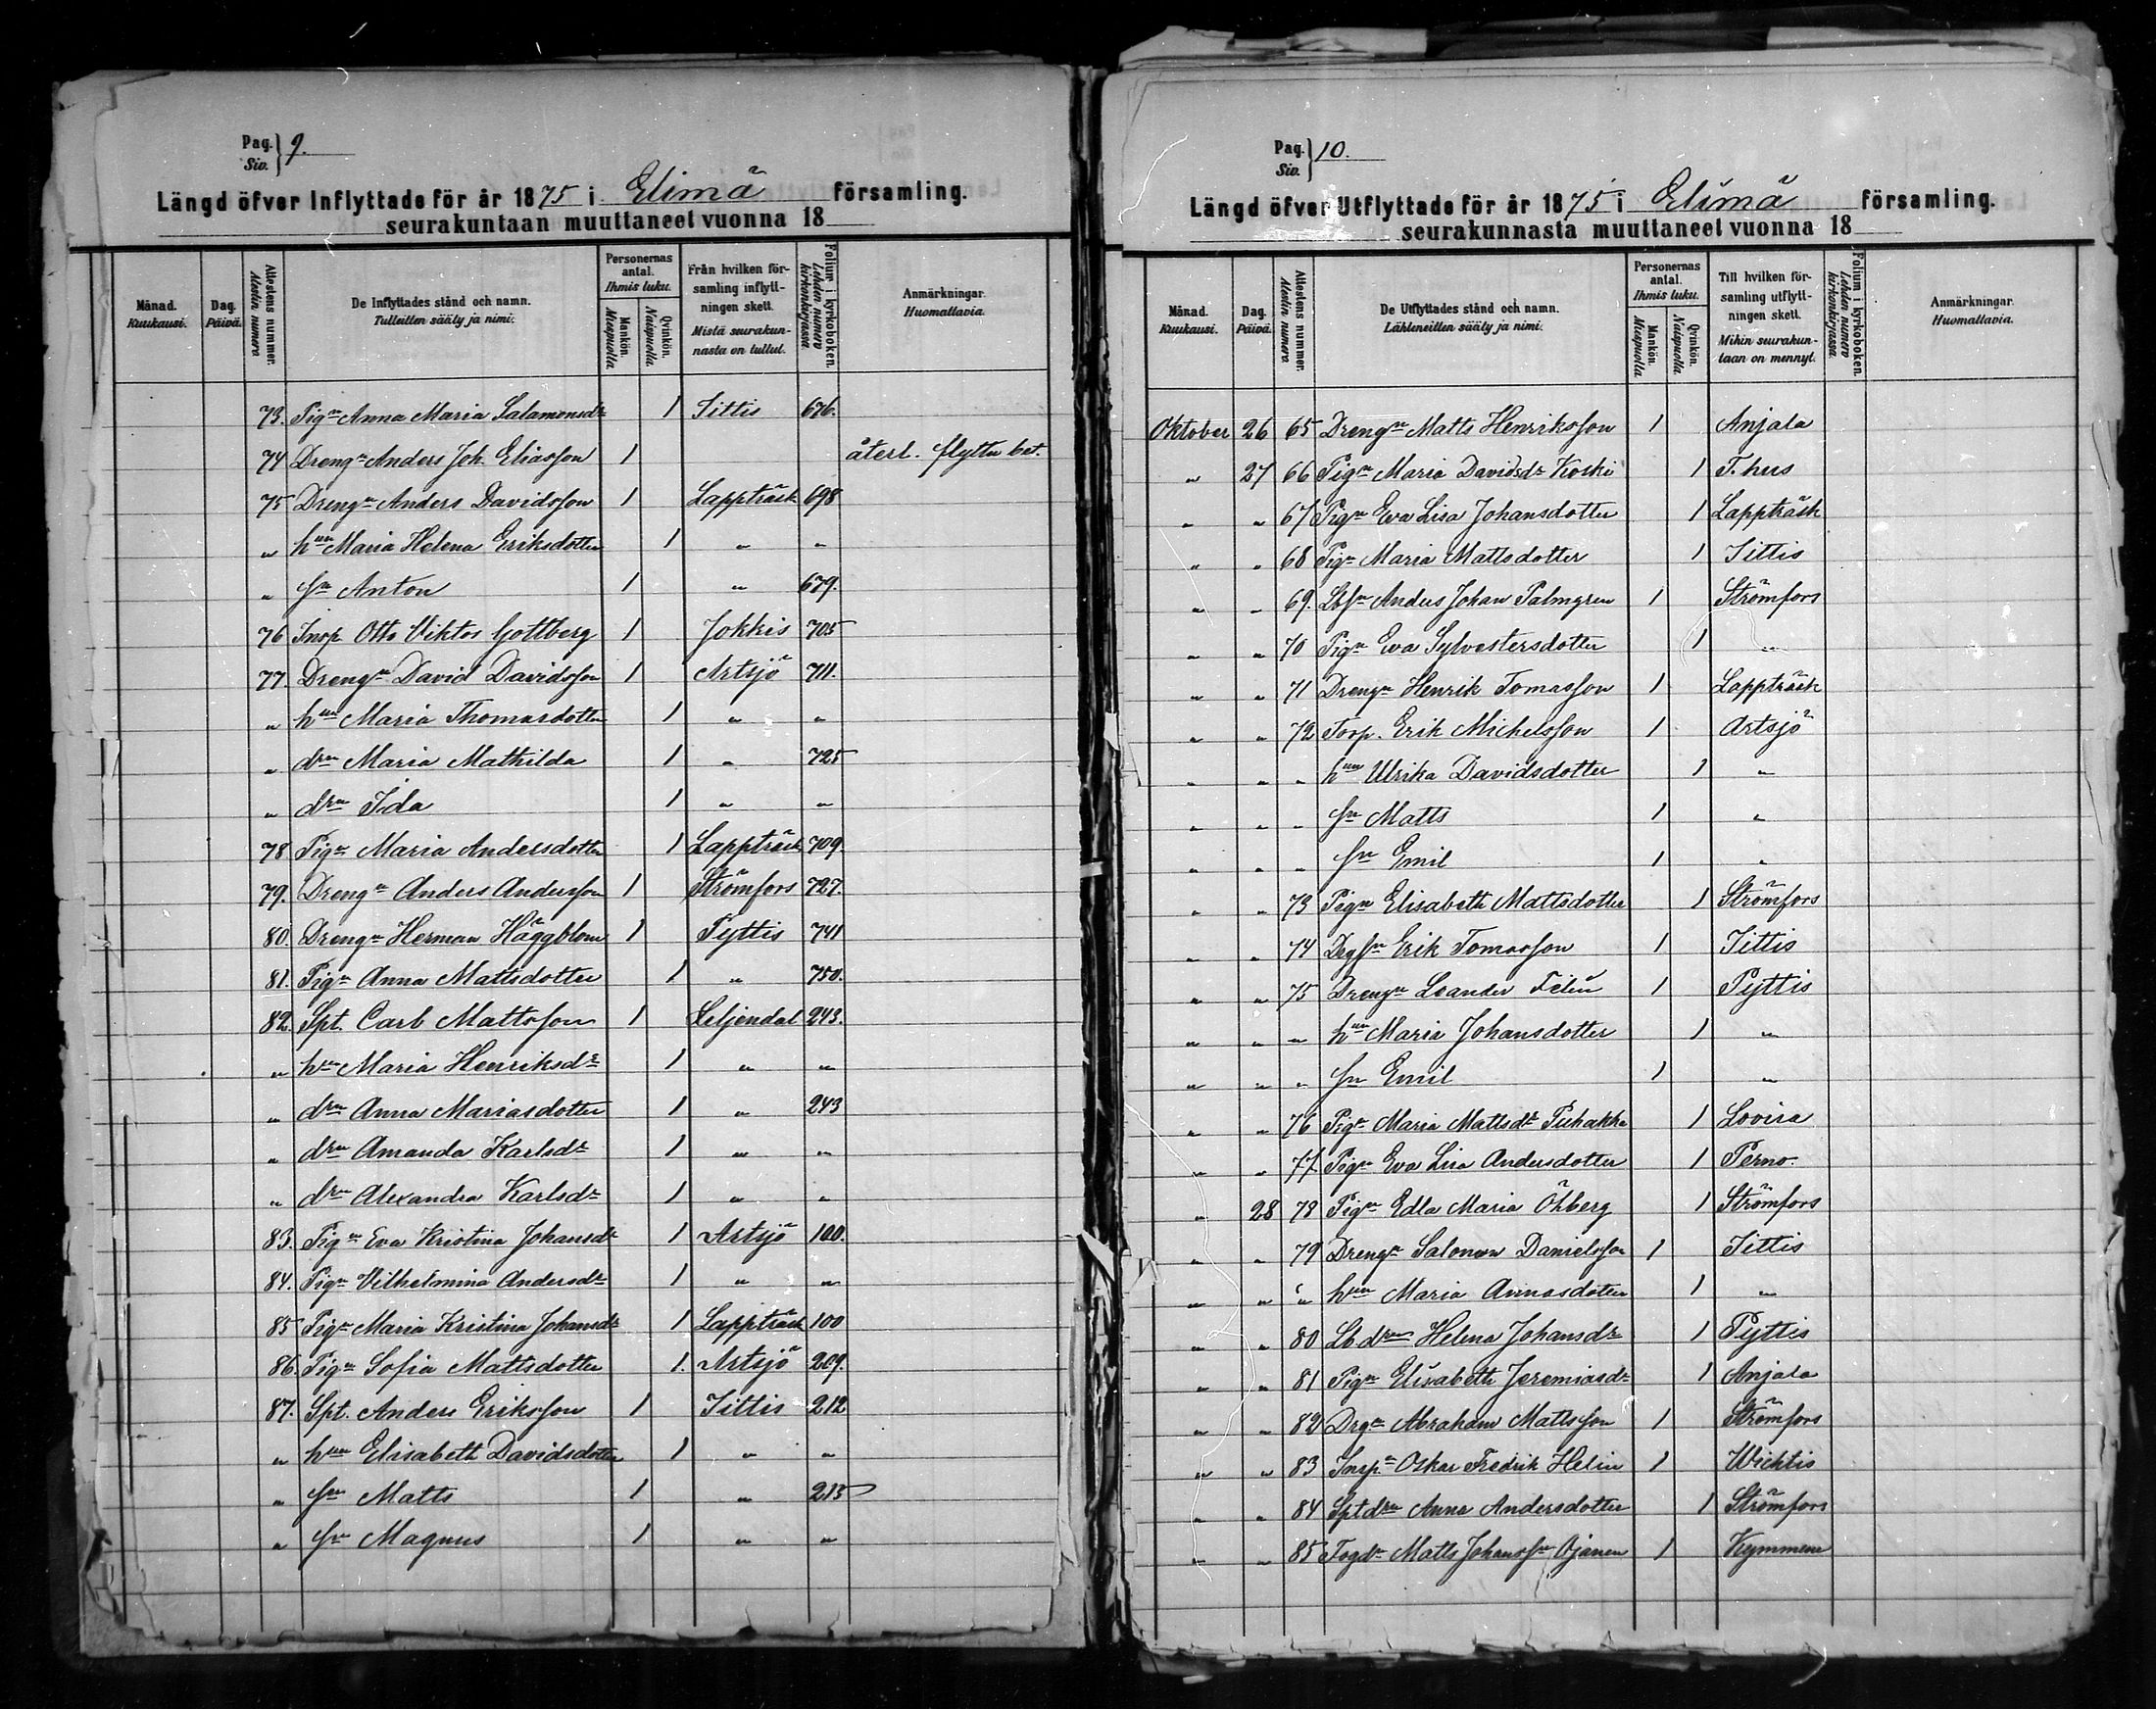 Pag. Siv. } 9.
Längd öfver Inflyttade för år 1875 i Elimä församling.
seurakuntaan muuttaneet vuonna 18
Månad. Kuukausi. Dag. Päivä. Attestens nummer. Atestin numero De Inflyttades stånd och namn. Tulleitten sääty ja nimi. Personernas antal. Ihmis luku. Mankön. Miespuolia Qvinkön. Naispuolia Från hvilken församling inflyttningen skett. Mistä seurakunnasta on tullut. Folium i kyrkoboken. Lehden numero kirkonkirjassa Anmärkningar. Huomattavia.
73. Pign Anna Maria Salamonsdr 1 Iittis 676.
74 Drengn Anders Joh. Eliasson 1 återl. flyttn bet.
75 Drengn Anders Davidsson 1 Lappträsk 698
" hun Maria Helena Eriksdotter 1 " "
" sn Anton 1 " 679.
76 Insp. Otto Viktor Gottberg 1 Jokkis 705
77. Drengn David Davidsson 1 Artsjö 711.
" hun Maria Thomasdotter 1 " "
" drn Maria Mathilda 1 " 725
" drn Ida 1 " "
78 Pign Maria Andersdotter 1 Lappträsk 709.
79. Drengn Anders Andersson 1 Strömfors 727.
80. Drengn Herman Häggblom 1 Pyttis 741
81. Pign Anna Mattsdotter 1 " 750.
82. Spt. Carl Mattsson 1 Liljendal 243.
" hun Maria Henriksdr 1 " "
" drn Anna Mariasdotter 1 " 243
" drn Amanda Karlsdr 1 " "
" drn Alexandra Karlsdr 1 " "
83. Pign Eva Kristina Johansdr 1 Artsjö 100.
84. Pign Vilhelmina Andersdr 1 " "
85 Pign Maria Kristina Johansdr 1 Lappträsk 100
86. Pign Sofia Mattsdotter 1. Artsjö 209.
87. Spt. Anders Eriksson 1 Iittis 212
" hun Elisabeth Davidsdotter 1 " "
" sn Matts 1 " 213
" sn Magnus 1 " "
Pag. Siv. } 10.
Längd öfver Utflyttade för år 1875 i Elimä församling.
seurakunnasta muuttaneet vuonna 18
Månad. Kuukausi. Dag. Päivä. Attestens nummer. Atestin numero De Utflyttades stånd och namn. Lähteneitten sääty ja nimi. Personernas antal. Ihmis luku. Mankön. Miespuolia Qvinkön. Naispuolia Till hvilken församling utflyttningen skett. Mihin seurakuntaan on mennyt. Folium i kyrkoboken. Lehden numero kirkonkirjassa. Anmärkningar. Huomattavia.
Oktober 26 65 Drengn Matts Henriksson 1 Anjala
" 27 66 Pign Maria Davidsdr Koski 1 F.hus
" " 67 Pign Eva Lisa Johansdotter 1 Lappträsk
" " 68 Pign Maria Mattsdotter 1 Iittis
" " 69. Lbsn Anders Johan Palmgren 1 Strömfors
" " 70 Pign Eva Sylvestersdotter 1 "
" " 71 Drengn Henrik Tomasson 1 Lappträsk
" " 72 Torp. Erik Michelsson 1 Artsjö
" " " hun Ulrika Davidsdotter 1 "
" " " sn Matts 1 "
" " " sn Emil 1 "
" " 73 Pign Elisabeth Mattsdotter 1 Strömfors
" " 74 Drgsn Erik Tomasson 1 Iittis
" " 75 Drengn Leander Felin 1 Pyttis
" " " hun Maria Johansdotter 1 "
" " " sn Emil 1 "
" " 76 Pign Maria Mattsdr Puhakka 1 Lovisa
" " 77. Pign Eva Lisa Andersdotter 1 Perno.
" 28 78 Pign Edla Maria Öhberg 1 Strömfors
" " 79 Drengn Salomon Danielsson 1 Iittis
" " " hun Maria Annasdotter 1 "
" " 80 Lb.drn Helena Johansdr 1 Pyttis
" " 81 Pign Elisabeth Jeremiasdr 1 Anjala
" " 82 Drgn Abraham Mattsson 1 Strömfors
" " 83 Insp.n Oskar Fredrik Helin 1 Wichtis
" " 84 Sptdrn Anna Andersdotter 1 Strömfors
" " 85 Fogdn Matts Johansson Ojanen 1 Kymmene